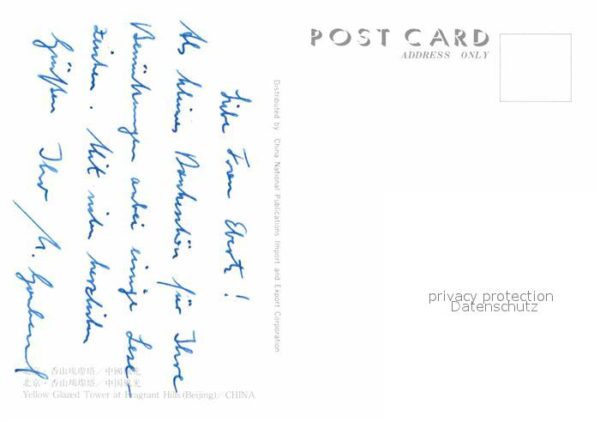 POST CARD
ADDRESS ONLY
Liebe Frau Ebert!
Als kleines Dankeschön für Ihre
Bemühungen anbei einige Lese-
zeichen. Mit vielen herzlichen
Grüßen Ihr
Distributed by China National Publications Import and Export Corporation
privacy protection
Datenschutz
香山琉璃塔／中國
北京·香山琉璃塔／中国
Yellow Glazed Tower at Fragrant Hills (Beijing)／CHINA